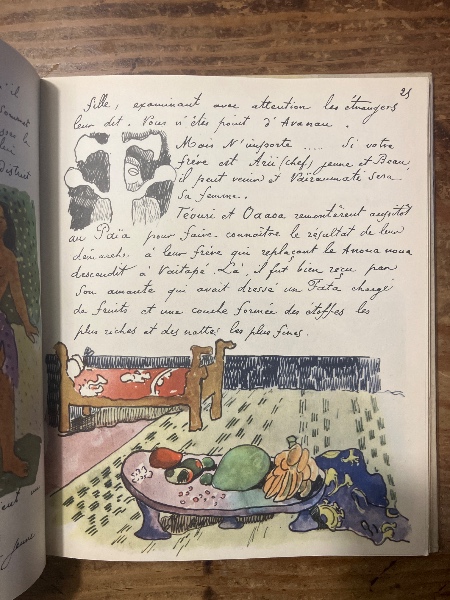 25
fille, examinant avec attention les étrangers
leur dit. Vous n'êtes point d'Avanau.
Mais N'importe .... Si votre
frère est Arii (chef) jeune et Beau,
il peut venir et Vaïraumati sera
Sa femme..
Téouri et Oaaoa remontèrent aussitôt
au Païa pour faire connaître le résultat de leur
démarche, à leur frère qui replaçant le Anoua noua
descendit à Vaitapé. Là, il fut bien reçu par
Son amante qui avait dressé un Fata chargé
de fruits et une couche formée des étoffes les
plus riches et des nattes les plus fines.